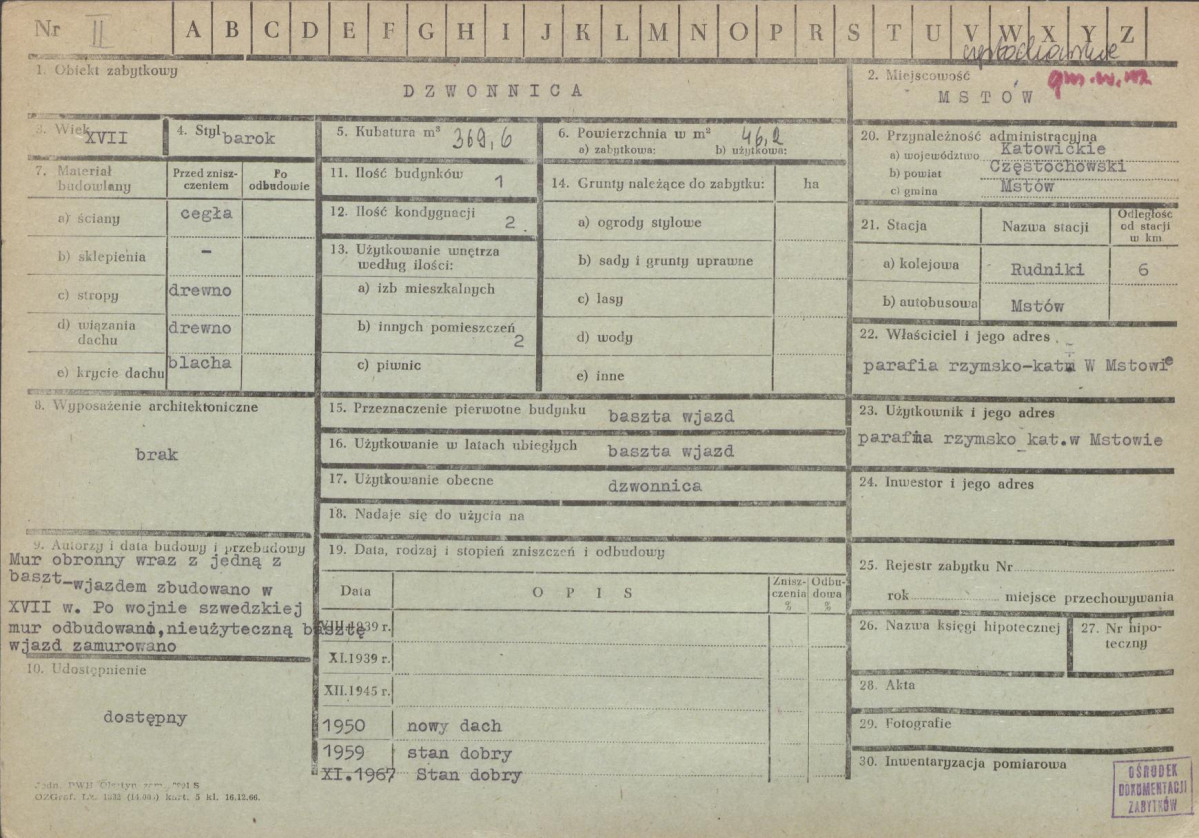 Nr II A B C D E F G H I J K L M N O P R S T U V W X Y Z
1. Obiekt zabytkowy
DZWONNICA
2. Miejscowość
MSTÓW
3. Wiek XVII
4. Styl barok
5. Kubatura m³ 369,6
6. Powierzchnia w m² 46,2
a) zabytkowa: b) użytkowa:
7. Materiał budowlany
Przed zniszczeniem
Po odbudowie
a) ściany cegła
b) sklepienia –
c) stropy drewno
d) wiązania dachu drewno
e) krycie dachu blacha
8. Wyposażenie architektoniczne
brak
9. Autorzy i data budowy i przebudowy
Mur obronny wraz z jedną z
baszt–wjazdem zbudowano w
XVII w. Po wojnie szwedzkiej
mur odbudowano, nieużyteczną basztę
wjazd zamurowano
10. Udostępnienie
dostępny
11. Ilość budynków 1
12. Ilość kondygnacji 2
13. Użytkowanie wnętrza
według ilości:
a) izb mieszkalnych
b) innych pomieszczeń 2
c) piwnic
14. Grunty należące do zabytku: ha
a) ogrody stylowe
b) sady i grunty uprawne
c) lasy
d) wody
e) inne
15. Przeznaczenie pierwotne budynku baszta wjazd
16. Użytkowanie w latach ubiegłych baszta wjazd
17. Użytkowanie obecne dzwonnica
18. Nadaje się do użycia na
19. Data, rodzaj i stopień zniszczeń i odbudowy
Data
OPIS
Zniszczenia %
Odbudowa %
VIII.1939 r.
XI.1939 r.
XII.1945 r.
1950 nowy dach
1959 stan dobry
XI.1967 Stan dobry
20. Przynależność administracyjna
a) województwo Katowickie
b) powiat Częstochowski
c) gmina Mstów
21. Stacja
Nazwa stacji
Odległość od stacji w km
a) kolejowa Rudniki 6
b) autobusowa Mstów
22. Właściciel i jego adres
parafia rzymsko-kat. W Mstowie
23. Użytkownik i jego adres
parafia rzymsko kat.w Mstowie
24. Inwestor i jego adres
25. Rejestr zabytku Nr
rok miejsce przechowywania
26. Nazwa księgi hipotecznej
27. Nr hipoteczny
28. Akta
29. Fotografie
30. Inwentaryzacja pomiarowa
OŚRODEK
DOKUMENTACJI
ZABYTKÓW
OZGraf. kart. 5 kl. 16.12.66.